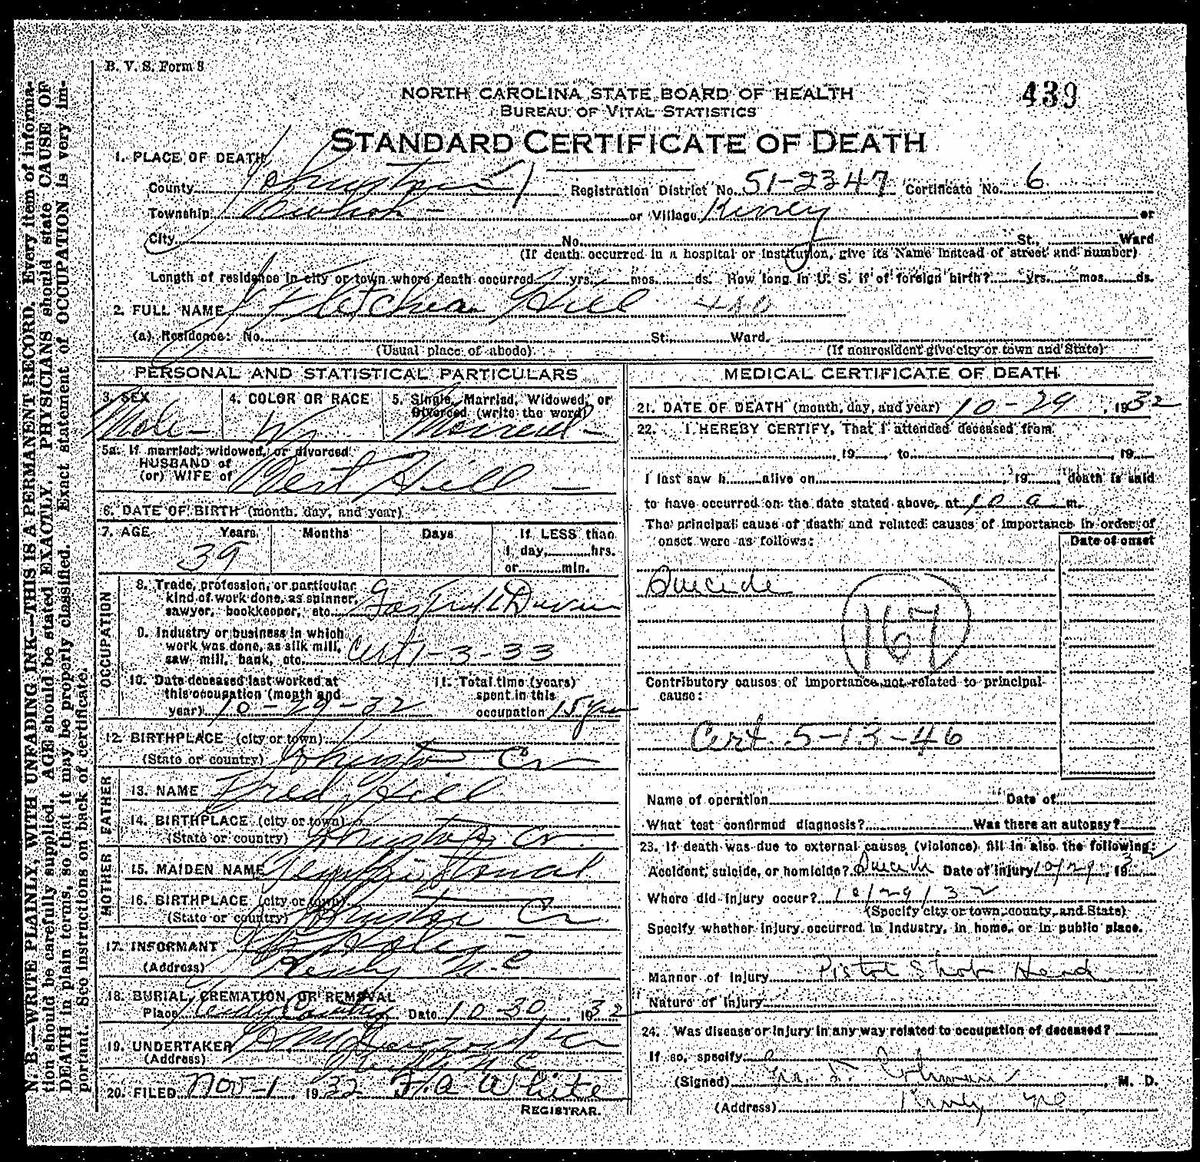 B. V. S. Form 8
439
NORTH CAROLINA STATE BOARD OF HEALTH
BUREAU OF VITAL STATISTICS
STANDARD CERTIFICATE OF DEATH
N. B.—WRITE PLAINLY, WITH UNFADING INK—THIS IS A PERMANENT RECORD. Every item of informa-
tion should be carefully supplied. AGE should be stated EXACTLY. PHYSICIANS should state CAUSE OF
DEATH in plain terms, so that it may be properly classified. Exact statement of OCCUPATION is very im-
portant. See instructions on back of certificate.
1. PLACE OF DEATH
County Johnston Registration District No. 51-2347 Certificate No. 6
Township or Village or
City No. St., Ward
(If death occurred in a hospital or institution, give its Name instead of street and number)
Length of residence in city or town where death occurred yrs. mos. ds. How long in U. S. if of foreign birth? yrs. mos. ds.
2. FULL NAME Hill
(a) Residence: No. St. Ward.
(Usual place of abode) (If nonresident give city or town and State)
PERSONAL AND STATISTICAL PARTICULARS
3. SEX Male
4. COLOR OR RACE W
5. Single, Married, Widowed, or
Divorced (write the word) Married
5a. If married, widowed, or divorced
HUSBAND of
(or) WIFE of Hill
6. DATE OF BIRTH (month, day, and year)
7. AGE Years Months Days If LESS than
39 1 day, hrs.
or min.
OCCUPATION
8. Trade, profession, or particular
kind of work done, as spinner,
sawyer, bookkeeper, etc. Gas Truck Driver
9. Industry or business in which
work was done, as silk mill,
saw mill, bank, etc. Cert 1-3-33
10. Date deceased last worked at
this occupation (month and
year) 10-29-32
11. Total time (years)
spent in this
occupation 15 yrs
12. BIRTHPLACE (city or town)
(State or country) Johnston Co
FATHER
13. NAME Fred Hill
14. BIRTHPLACE (city or town)
(State or country) Johnston Co.
MOTHER
15. MAIDEN NAME
16. BIRTHPLACE (city or town)
(State or country) Johnston Co
17. INFORMANT
(Address) N.C
18. BURIAL, CREMATION, OR REMOVAL
Place Date 10-30, 1932
19. UNDERTAKER
(Address) N.C
20. FILED Nov-1, 1932 F. A. White
REGISTRAR.
MEDICAL CERTIFICATE OF DEATH
21. DATE OF DEATH (month, day, and year) 10-29, 1932
22. I HEREBY CERTIFY, That I attended deceased from
, 19 , to , 19
I last saw h alive on , 19 , death is said
to have occurred on the date stated above, at 10 a m.
The principal cause of death and related causes of importance in order of
onset were as follows:
Date of onset
Suicide
167
Contributory causes of importance not related to principal
cause:
Cert 5-13-46
Name of operation Date of
What test confirmed diagnosis? Was there an autopsy?
23. If death was due to external causes (violence) fill in also the following:
Accident, suicide, or homicide? Suicide Date of injury 10/29, 1932
Where did injury occur? 10/29/32
(Specify city or town, county, and State)
Specify whether injury occurred in industry, in home, or in public place.
Manner of injury Pistol Shot Head
Nature of injury
24. Was disease or injury in any way related to occupation of deceased?
If so, specify
(Signed) , M. D.
(Address) NC